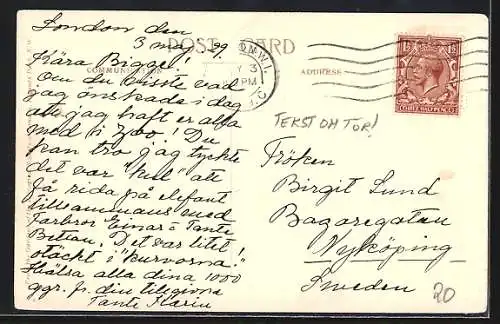 London den
3 maj 29.
POST CARD
Kära Bigge!
COMMUNICATION
ADDRESS
Om du visste vad
jag önskade i dag
att jag haft er alla
med i Zoo! Du
kan tro jag tyckte
det var "kul" att
få rida på elefant
tillsammans med
Farbror Einar o Tante
Det var litet
otäckt i "kurvorna"!
Hälsa alla dina 1000
ggr. fr. din tillgivna
Tante Karin
LONDON. W.1.
3
PM
1½ 1½
THREE HALFPENCE
TEKST OM TOR!
Fröken
Birgit Lund
Bagaregatan
Nyköping
Sweden
20